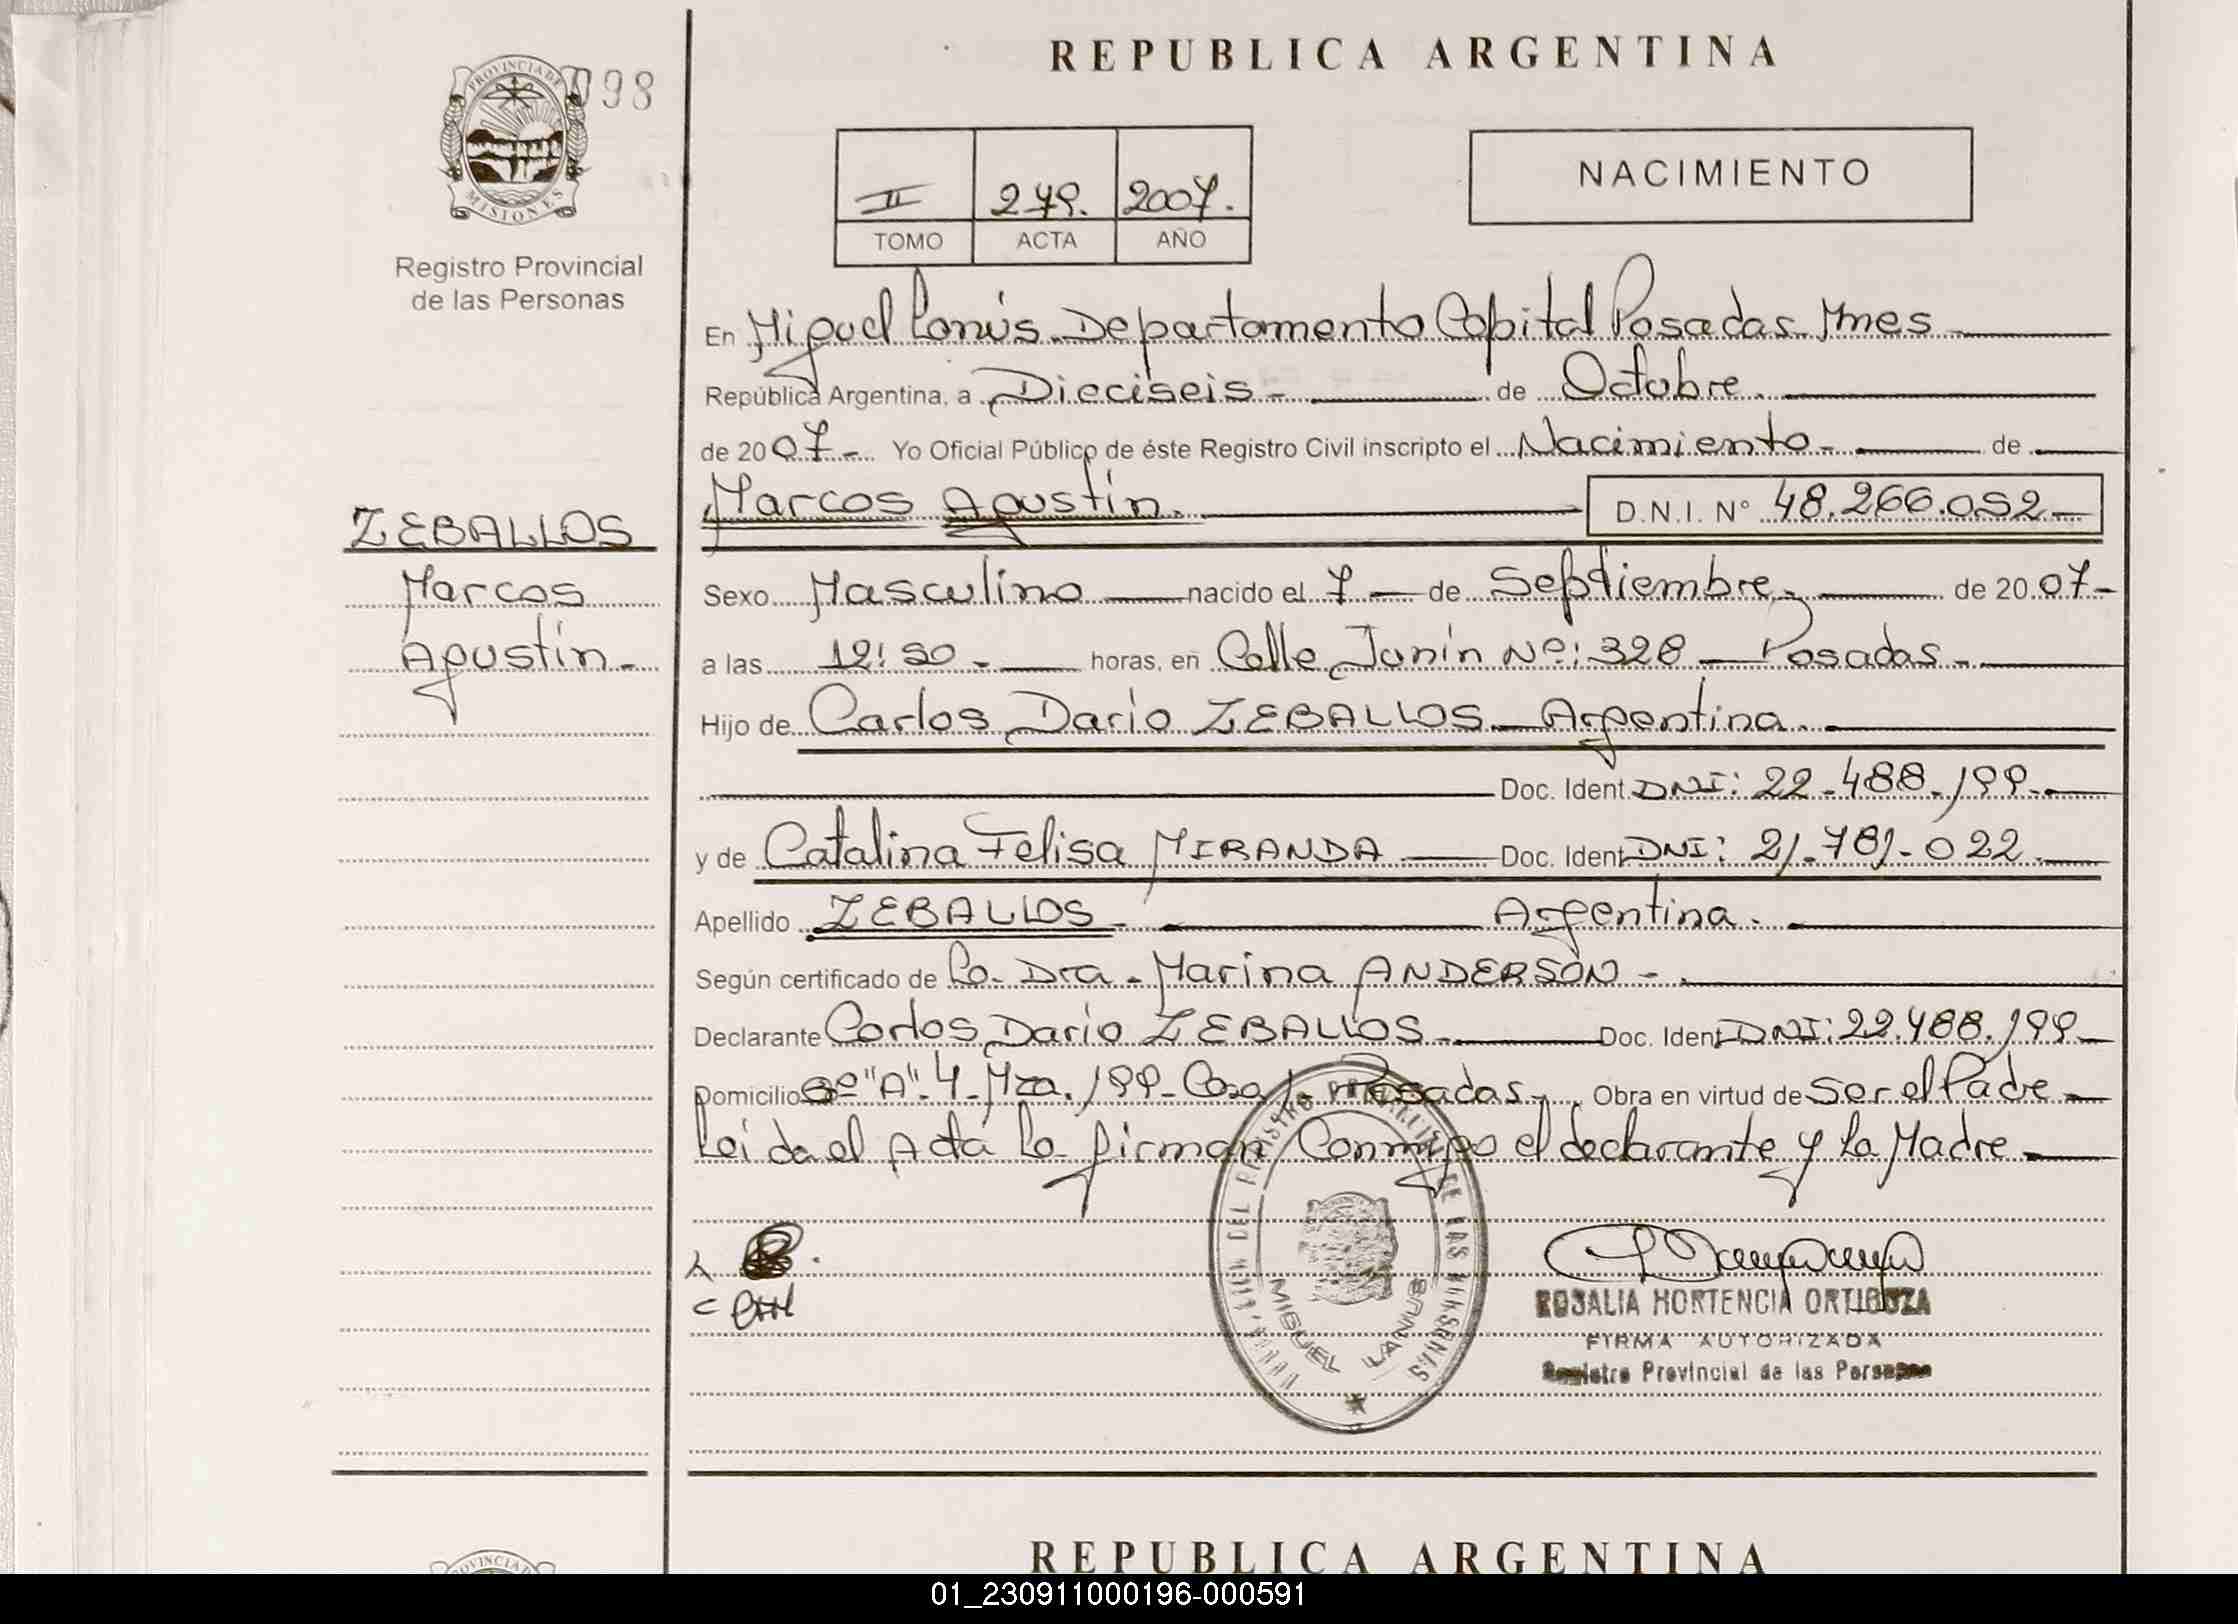 REPUBLICA ARGENTINA
PROVINCIA DE
MISIONES
098
Registro Provincial
de las Personas
II 279. 2007.
TOMO ACTA AÑO
NACIMIENTO
En Miguel Lanús Departamento Capital Posadas Mnes
República Argentina, a Dieciseis - de Octubre
de 2007 - Yo Oficial Público de éste Registro Civil inscripto el Nacimiento - de
Marcos Agustín. D.N.I. N° 48.266.052
ZEBALLOS
Marcos
Agustín -
Sexo Masculino nacido el 7 de Septiembre de 2007-
a las horas, en Calle Junín Nº: 328 - Posadas -
Hijo de Carlos Dario ZEBALLOS - Argentina
Doc. Ident DNI: 22-488.199-
y de Catalina Felisa MIRANDA Doc. Ident DNI: 21.781-022
Apellido ZEBALLOS - Argentina.
Según certificado de La Dra. Marina ANDERSON -
Declarante Carlos Dario ZEBALLOS - Doc. Ident DNI: 22.488.199-
Domicilio "A" 4 Mza. 199- Casa Posadas Obra en virtud de Ser el Padre
Leida el Acta La firman Conmigo el declarante y La Madre
DEL REGISTRO PROVINCIAL DE LAS PERSONAS
MIGUEL LANUS
ROSALIA HORTENCIA ORTIGOZA
FIRMA AUTORIZADA
Registro Provincial de las Personas
REPUBLICA ARGENTINA
01_230911000196-000591